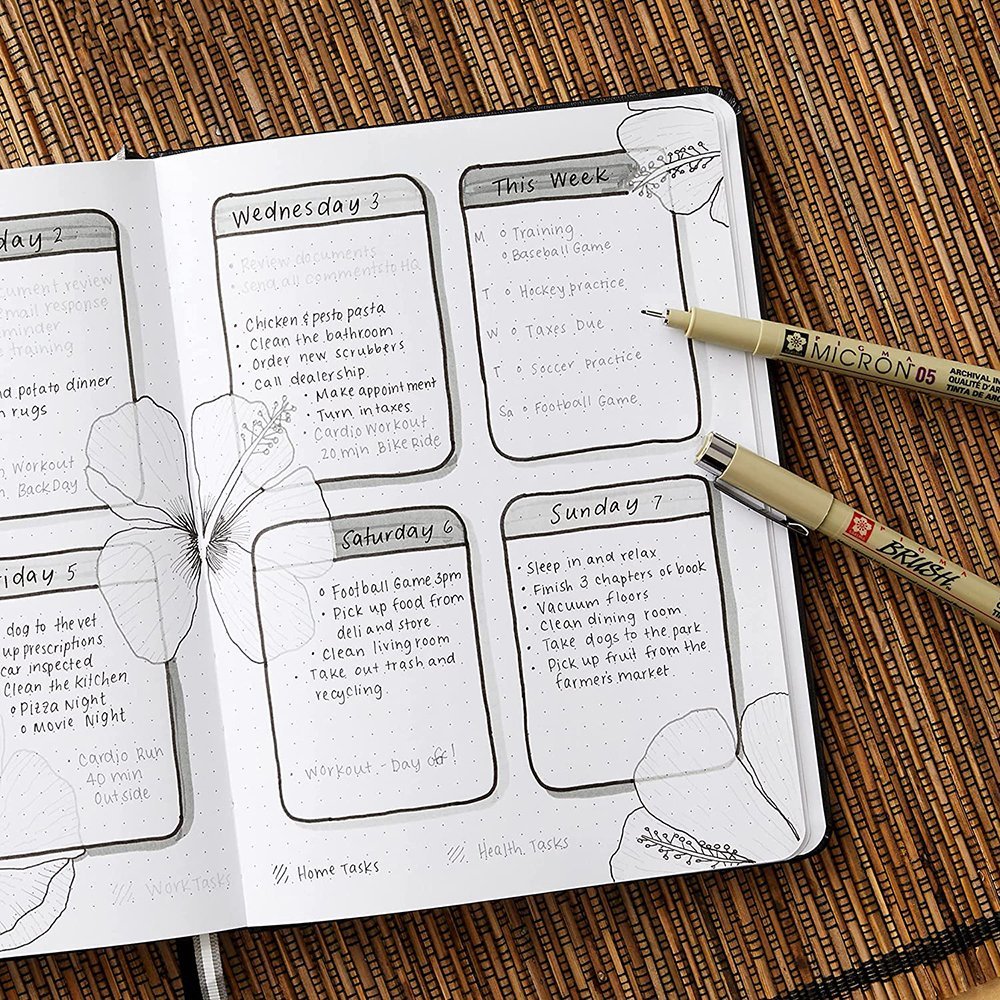 day 2
cument review
email response
minder
e training
nd potato dinner
n rugs
Workout
Back Day
riday 5
dog to the vet
up prescriptions
car inspected
Clean the kitchen
Pizza Night
Movie Night
Cardio Run
40 min
Outside
Work Tasks
Wednesday 3
Review documents
Send all comments to HQ
Chicken & pesto pasta
Clean the bathroom
Order new scrubbers
Call dealership
Make appointment
Turn in taxes
Cardio Workout
20 min Bike Ride
This Week
M Training
Baseball Game
T Hockey practice
W Taxes Due
T Soccer Practice
Sa Football Game
Saturday 6
Football Game 3pm
Pick up food from
deli and store
Clean living room
Take out trash and
recycling
Workout - Day off!
Sunday 7
Sleep in and relax
Finish 3 chapters of book
Vacuum floors
Clean dining room
Take dogs to the park
Pick up fruit from the
farmer's market
Home Tasks
Health Tasks
PIGMA
MICRON 05
ARCHIVAL IN
QUALITÉ D'AR
TINTA DE AR
PIGMA
BRUSH